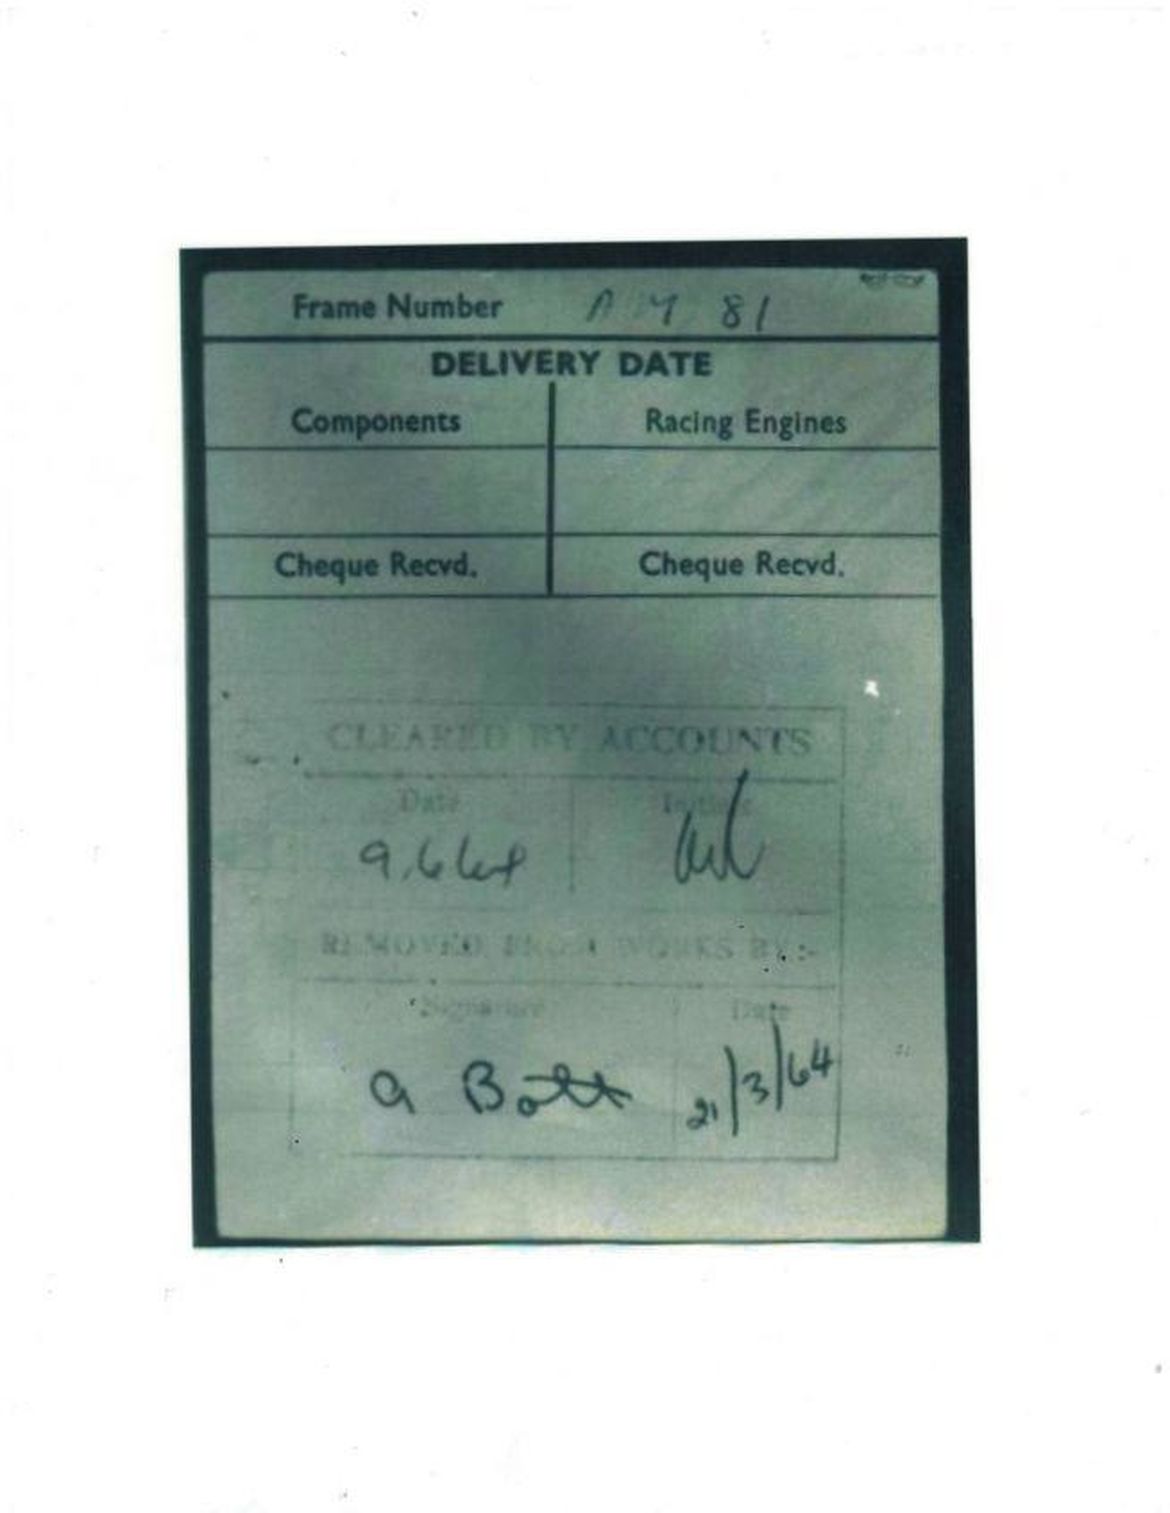 Frame Number AM 81
DELIVERY DATE
Components Racing Engines
Cheque Recvd. Cheque Recvd.
CLEARED BY ACCOUNTS
Date Initials
9.6.64
REMOVED FROM WORKS BY:-
Signature Date
a Bott 21/3/64